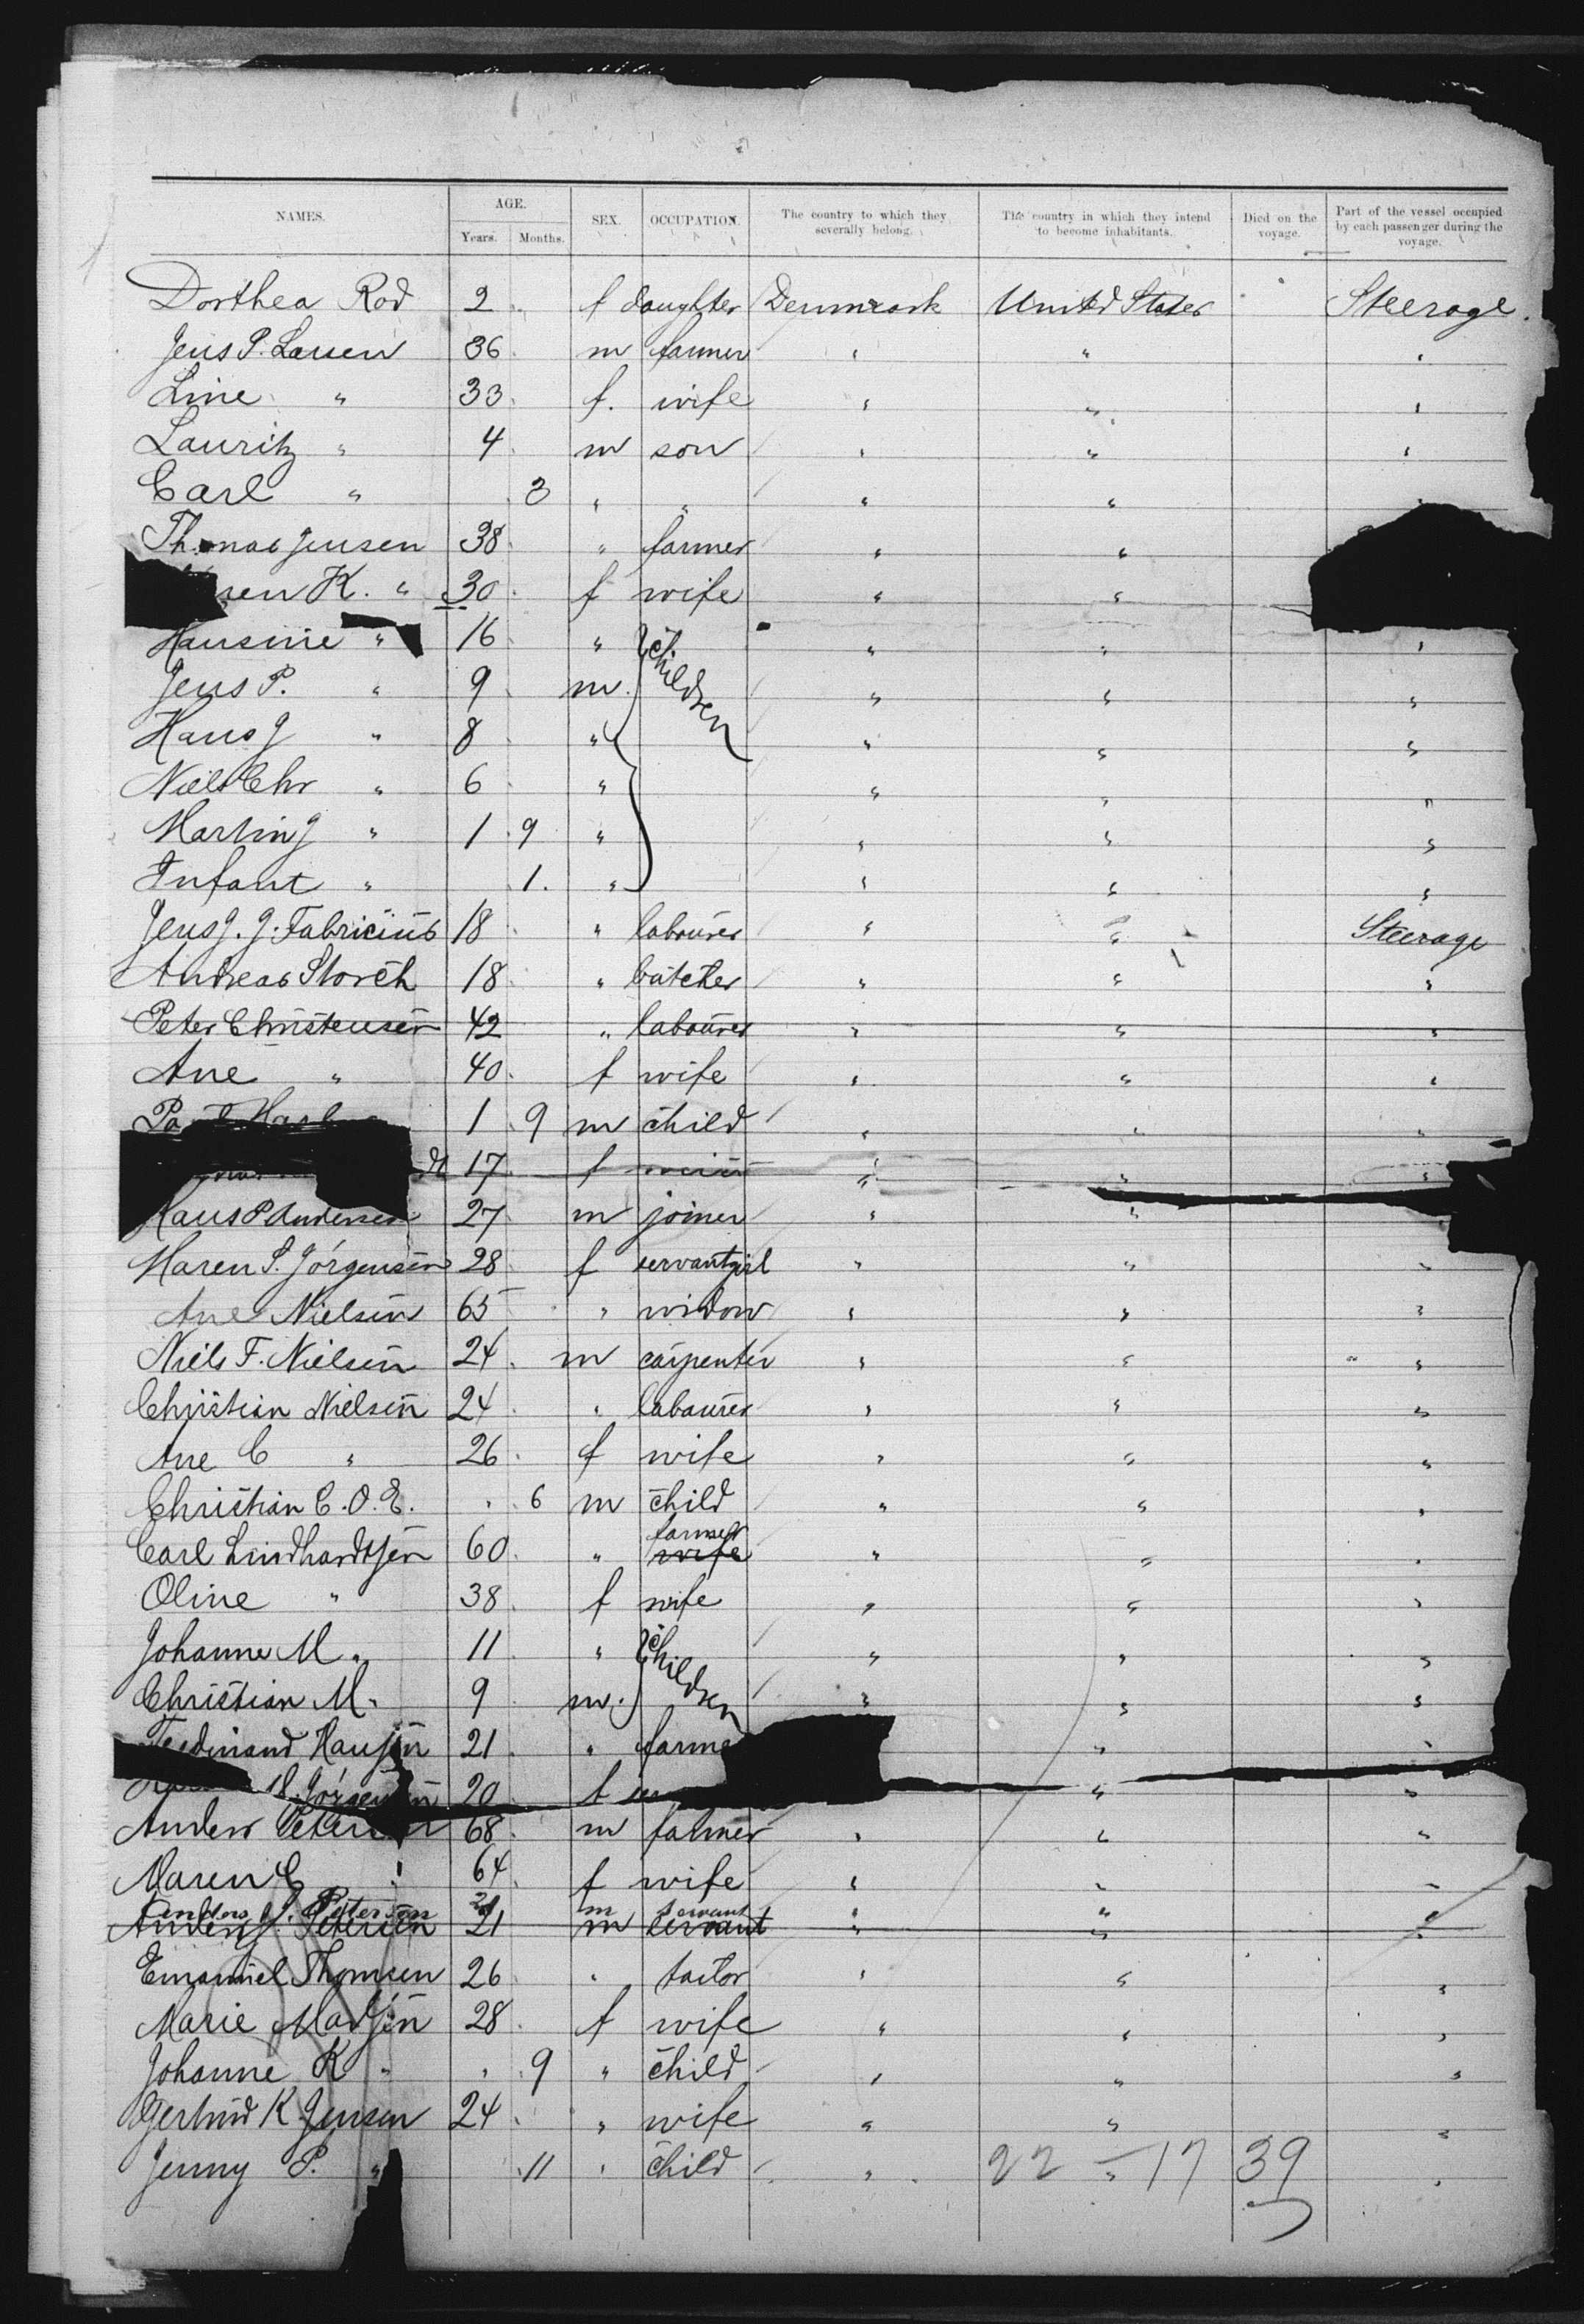 NAMES. AGE. SEX. OCCUPATION. The country to which they severally belong. The country in which they intend to become inhabitants. Died on the voyage. Part of the vessel occupied by each passenger during the voyage.
Years. Months.
Dorthea Rod 2 f daughter Denmark United States Steerage.
Jens P. Larsen 36 m farmer " " "
Line " 33 f. wife " " "
Lauritz " 4 m son " " "
Carl " 3 " " " "
Thomas Jensen 38 " farmer " "
K. " 30 f wife " "
Hansine " 16 " children " " "
Jens P. " 9 m. " " "
Hans J " 8 " " " "
Niels Chr " 6 " " " "
Martin J " 1 9 " " " "
Infant " 1. " " " "
Jens J. J. Fabricius 18 " labourer " " Steerage
Andreas Storch 18 " butcher " " "
Peter Christensen 42 " labourer " " "
Ane " 40 f wife " " "
1 9 m child " " "
17 f " " "
Hans P Andersen 27 m joiner " " "
Maren S. Jörgensen 28 f servantgirl " " "
Ane Nielsen 65 " widow " " "
Niels F. Nielsen 24 m carpenter " " "
Christian Nielsen 24 " labourer " " "
Ane C " 26 f wife " " "
Christian C. O. E. " 6 m child " " "
farmer
Carl Lindhardtsen 60 " wife " " "
Oline " 38 f wife " " "
Johanne M " 11 " children " " "
Christian M " 9 m. " " "
Ferdinand Hansen 21 " farme " "
Jörgensen 20 f " "
Anders Petersen 68 m farmer " " "
Maren C " 64 f wife " " "
Anders J. Petersen 21 m servant " "
Anders J. Petersen 21 m servant " " "
Emanuel Thomsen 26 " tailor " " "
Marie Madsen 28 f wife " " "
Johanne K " " 9 " child " " "
Gertrud K. Jensen 24 " wife " " "
Jenny P. " 11 " child " 22 - 17 39 "